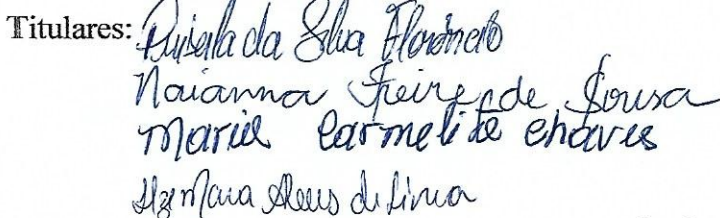 Titulares: da Silva Florêncio
Naianna Freire de Sousa
Maria Carmelita Chaves
Mara Alves de Lima